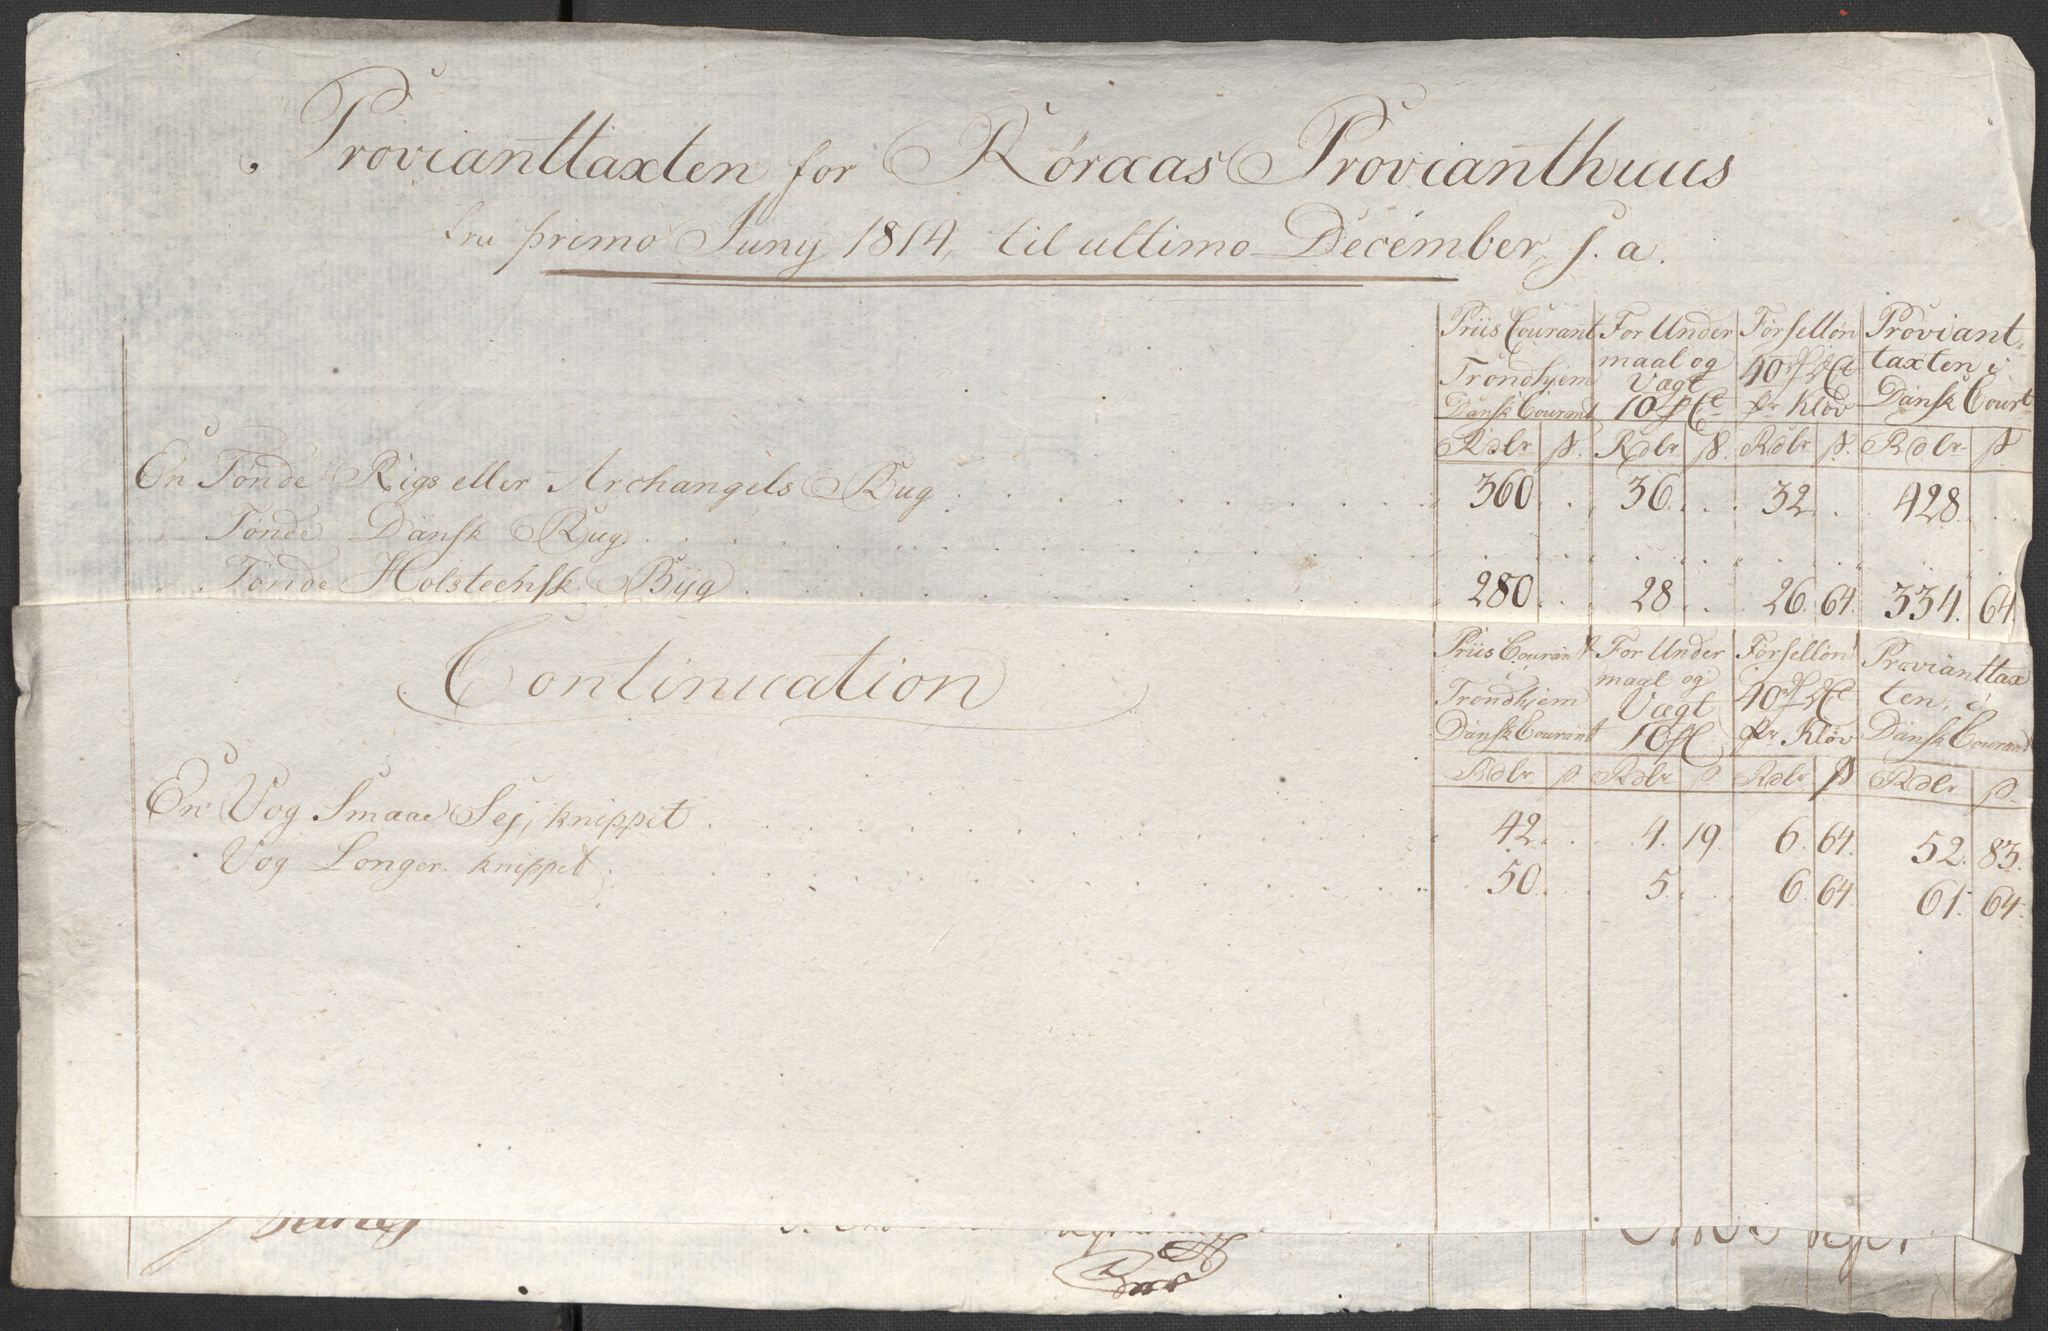 Provianttaxten for Röraas Provianthuus
fra primo Juny 1814, til ultimo December, s. a.
Priis Courant Trondhjem Dansk Courant | For Under maal og Vægt 10 | Forsellön 40 pr Kløv | Proviant taxten i Dansk Court
Rdlr | ß. | Rdlr | ß. | Rdlr | ß. | Rdlr | ß
En Tønde Rigs eller Archangels Rug . . . 360 . . 36 . . 32 . . 428 . .
Tønde Dansk Rug . . .
„ Tønde Holsteensk Byg . . . 280 . . 28 . . 26. 64. 334. 64.
Continuation
Priis Courant Trondhjem Dansk Courant | For Under maal og Vægt 10 | Forsellön 40 pr Kløv | Provianttax ten, i Dansk Courant
Rdlr | ß | Rdlr | ß | Rdlr | ß | Rdlr | ß.
En Vog Smaae Sej, knippet . . . 42 . . 4. 19 6. 64. 52. 83.
Vog Longer knippet . . . 50 . . 5 . . 6. 64. 61. 64.